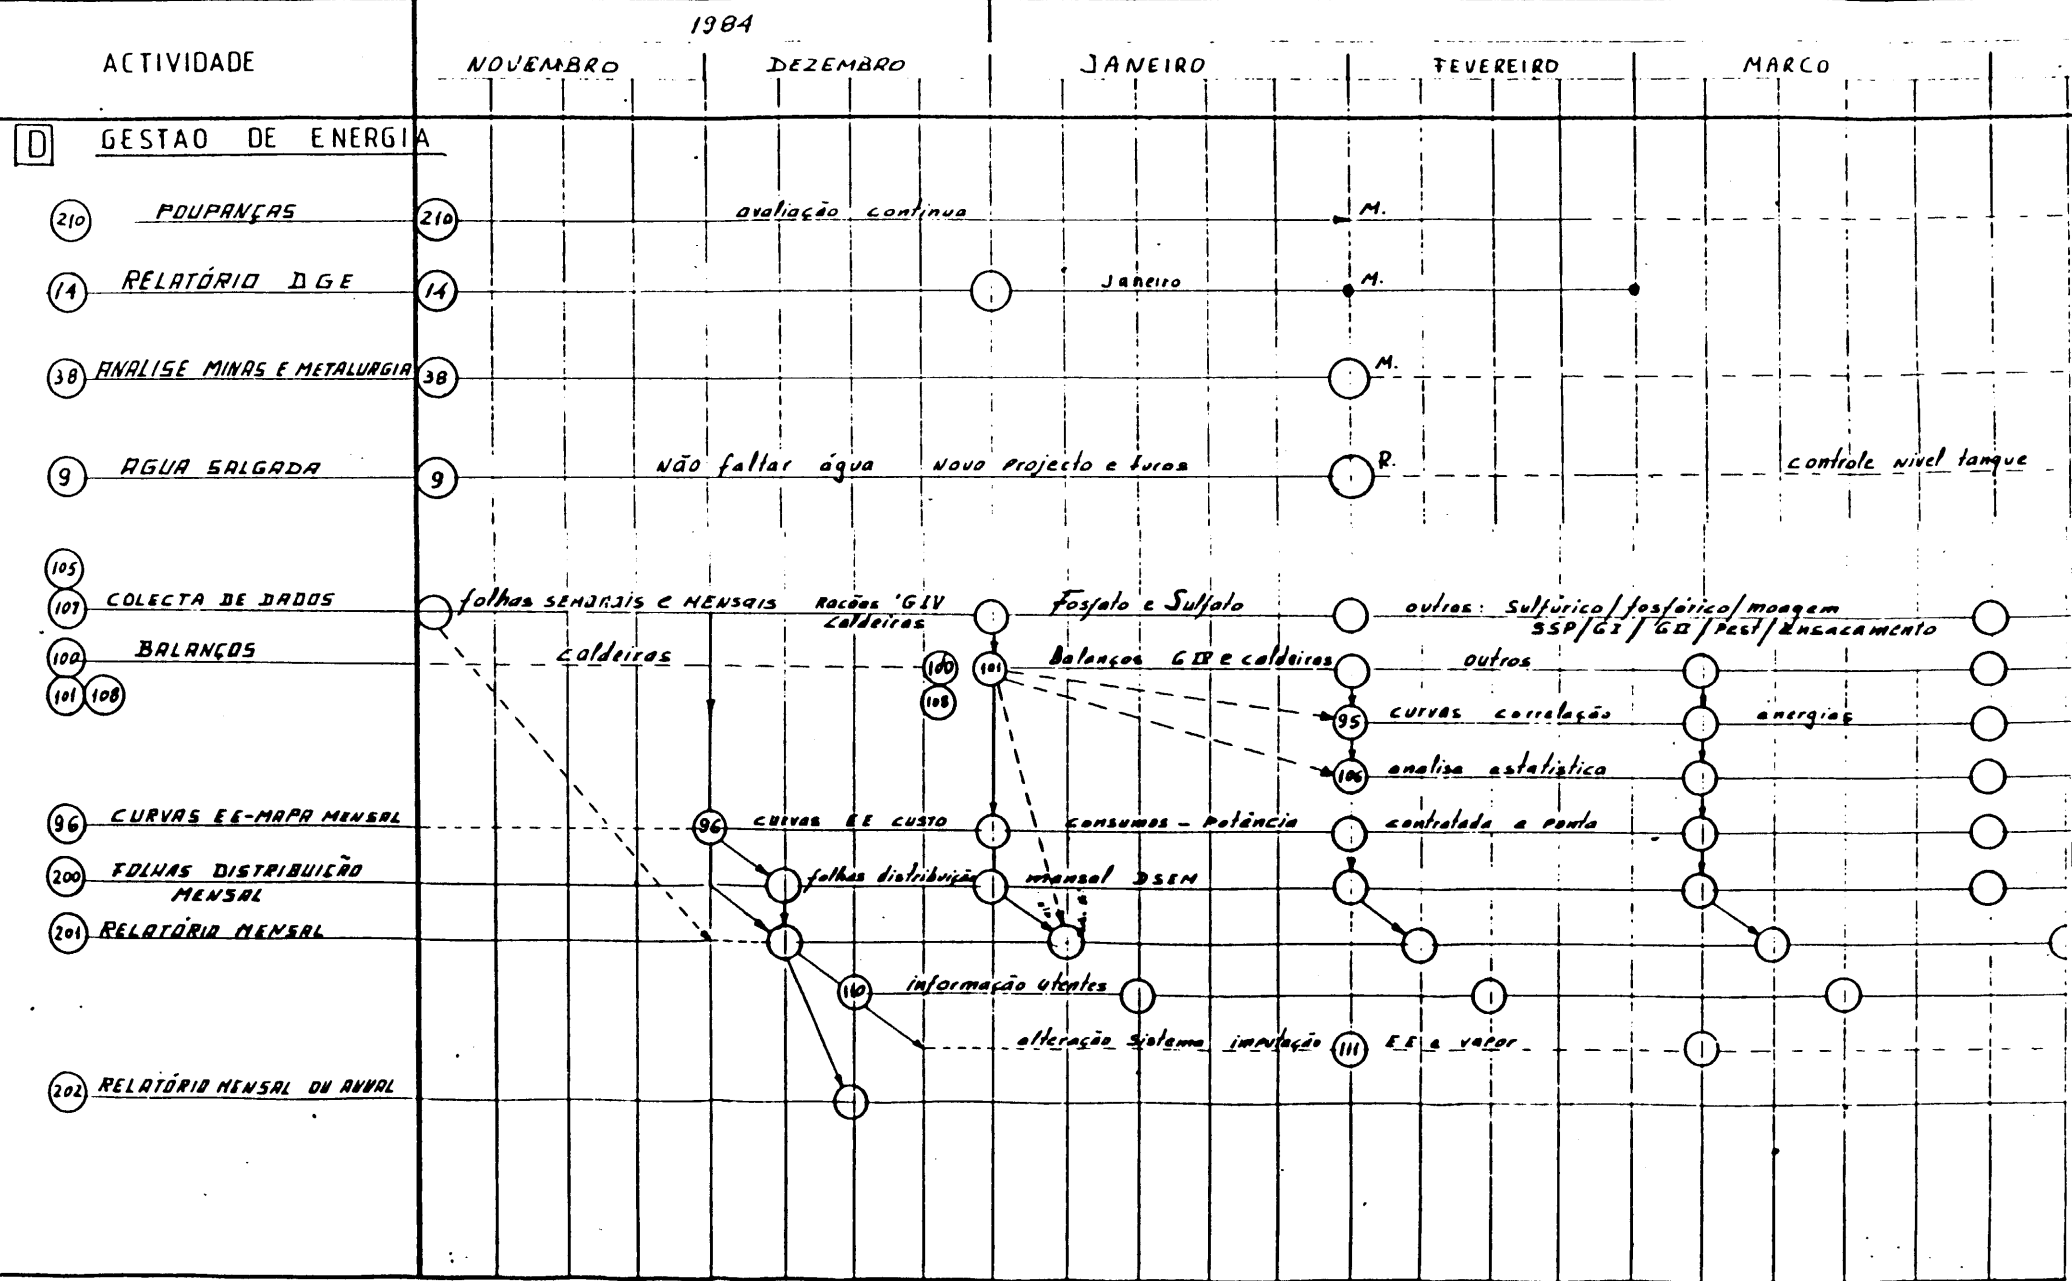 1984
ACTIVIDADE
NOVEMBRO DEZEMBRO JANEIRO FEVEREIRO MARCO
D GESTAO DE ENERGIA
210 POUPANÇAS 210 avaliação continua M.
14 RELATÓRIO DGE 14 Janeiro M.
38 ANALISE MINAS E METALURGIA 38 M.
9 AGUA SALGADA 9 Não faltar água Novo projecto e furos R. controle nivel tanque
105
107 COLECTA DE DADOS folhas SEMANAIS e MENSAIS Racões GIV Fosfato e Sulfato outros: Sulfúrico/fosfórico/moagem
caldeiras SSP/GI/GII/Pest/Ensacamento
100 BALANÇOS caldeiras 100 101 Balanços e caldeiras outros
101 108 108
95 curvas correlação energias
106 analise estatistica
96 CURVAS EE-MAPA MENSAL 96 curvas EE custo consumos - Potência contratada e ponta
200 FOLHAS DISTRIBUIÇÃO folhas distribuição mensal DSEM
MENSAL
201 RELATÓRIO MENSAL
110 informação utentes
alteração sistema imputação 111 EE e vapor
202 RELATÓRIO MENSAL OU ANUAL